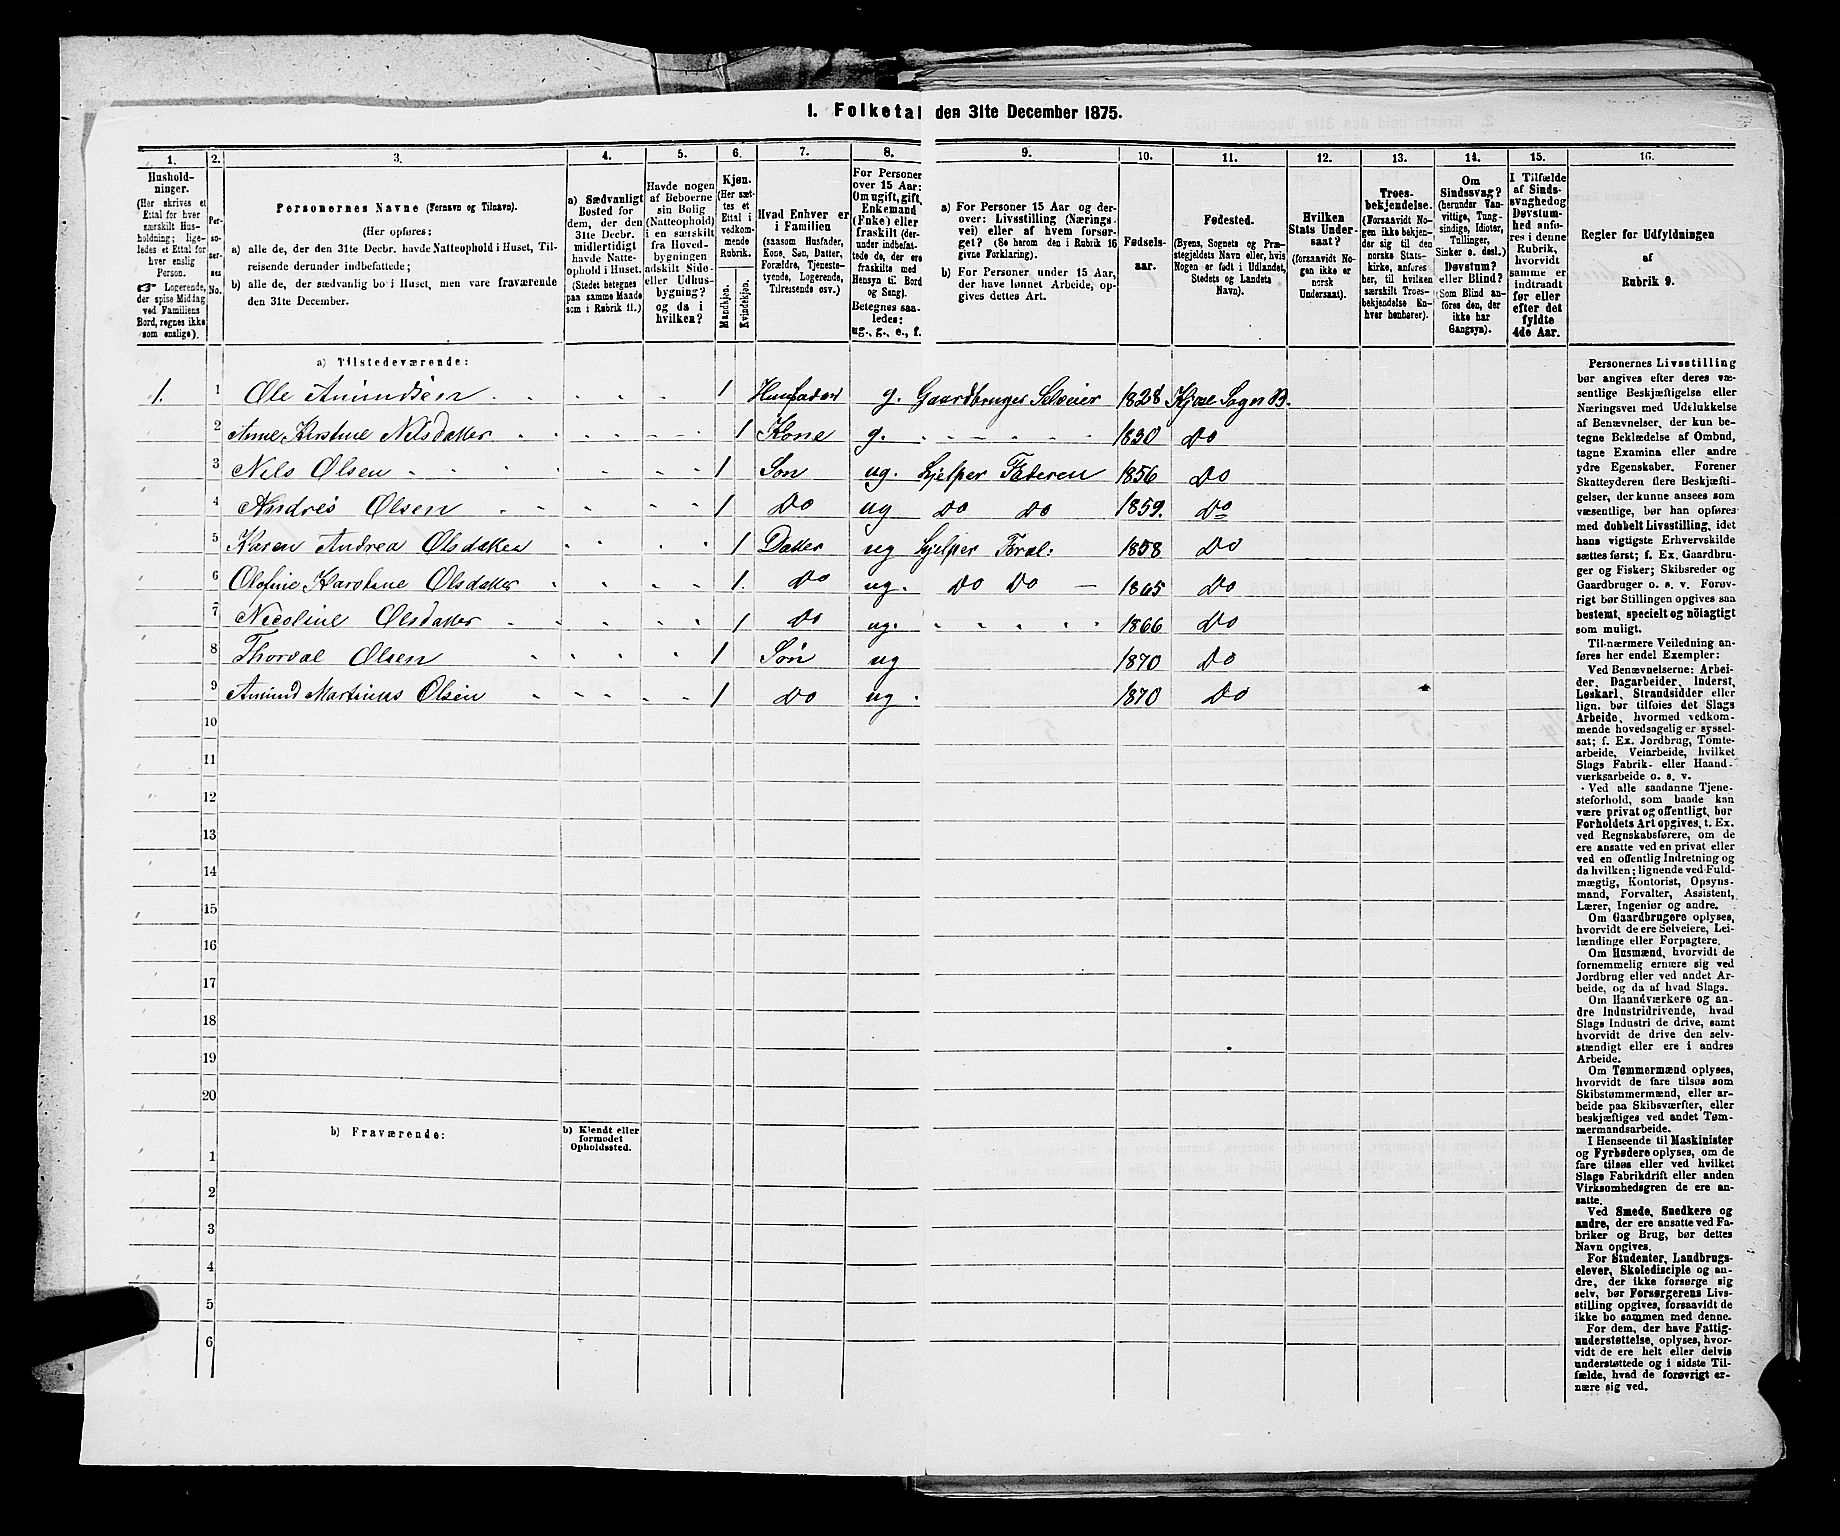 1. Folketal den 31te December 1875.
1. 2. 3. 4. 5. 6. 7. 8. 9. 10. 11. 12. 13. 14. 15. 16.
Hushold-
ninger.
(Her skrives et
Ettal for hver
særskilt Hus-
holdning; lige-
ledes et Ettal for
hver enslig
Person.
☞ Logerende,
der spise Middag
ved Familiens
Bord, regnes ikke
som enslige).
Per-
so-
ner-
nes
No.
Personernes Navne (Fornavn og Tilnavn).
(Her opføres:
a) alle de, der den 31te Decbr. havde Natteophold i Huset, Til-
reisende derunder indbefattede;
b) alle de, der sædvanlig bo i Huset, men vare fraværende
den 31te December.
a) Sædvanligt
Bosted for
dem, der den
31te Decbr.
midlertidigt
havde Natte-
ophold i Huset.
(Stedet betegnes
paa samme Maade
som i Rubrik 11.)
Havde nogen
af Beboerne
sin Bolig
(Natteophold)
i en særskilt
fra Hoved-
bygningen
adskilt Side-
eller Udhus-
bygning?
og da
hvilken?
Kjøn.
(Her sæt-
tes et
Ettal i
vedkom-
mende
Rubrik.
Mandkjøn.
Kvindekjøn.
Hvad Enhver er
i Familien
(saasom Husfader,
Kone, Søn, Datter,
Forældre, Tjeneste-
tyende, Logerende,
Tilreisende osv.)
For Personer
over 15 Aar:
Om ugift, gift,
Enkemand
(Enke) eller
fraskilt (der-
under indbefat-
tede de, der ere
fraskilte med
Hensyn til Bord
og Seng).
Betegnes saa-
ledes:
ug., g., e., f.
a) For Personer 15 Aar og der-
over: Livsstilling (Nærings-
vei) eller af hvem forsør-
get? (Se herom den i Rubrik 16
givne Forklaring).
b) For Personer under 15 Aar,
der have lønnet Arbeide, op-
gives dettes Art.
Fødsels-
aar.
Fødested.
(Byens, Sognets og Præ-
stegjeldets Navn eller, hvis
Nogen er født i Udlandet,
Stedets og Landets
Navn).
Hvilken
Stats Under-
saat?
(forsaavidt No-
gen ikke er
norsk
Undersaat).
Troes-
bekjendelse.
(Forsaavidt No-
gen ikke bekjen-
der sig til den
norske Stats-
kirke, anføres
her, til hvilken
særskilt Troes-
bekjendelse En-
hver henhører).
Om
Sindssvag?
(herunder Van-
vittige, Tung-
sindige, Idioter,
Tullinger,
Sinker o. desl.)
Døvstum?
eller Blind?
(Som Blind an-
føres den, der
ikke har
Gangsyn).
I Tilfælde
af Sinds-
svaghed og
Døvstum-
hed anfø-
res i denne
Rubrik,
hvorvidt
samme er
indtraadt
før eller
efter det
fyldte
4de Aar.
Regler før Udfyldningen
af
Rubrik 9.
a) Tilstedeværende:
1. 1 Ole Amundsen 1 Husfader g. Gaardbruger Selveier 1828 Sogn
2 Anne Kirstine Nilsdatter 1 Kone g. 1830 Do
3 Nils Olsen 1 Søn ug. hjelper Faderen 1856 Do
4 Andres Olsen 1 Do ug do do 1859. Do
5 Karen Andrea Olsdatter 1 Datter ug hjelper Foræl: 1858 Do
6 Olefine Karoline Olsdatter 1. Do ug. Do Do 1865 Do
7 Nicoline Olsdatter 1 Do ug. 1866 Do
8 Thorval Olsen 1 Søn ug 1870 Do
9 Amund Martinus Olsen 1 Do ug. 1870 Do
10
11
12
13
14
15
16
17
18
19
20
b) Fraværende:
b) Kjendt eller
formodet
Opholdssted.
1
2
3
4
5
6
Personernes Livsstilling
bør angives efter deres væ-
sentlige Beskjæftigelse eller
Næringsvei med Udelukkelse
af Benævnelser, der kun be-
tegne Beklædelse af Ombud,
tagne Examina eller andre
ydre Egenskaber. Forener
Skatteyderen flere Beskjæfti-
gelser, der kunne ansees som
væsentlige, bør han opføres
med dobbelt Livsstilling, idet
hans vigtigste Erhvervskilde
sættes først; f. Ex. Gaardbru-
ger og Fisker; Skibsreder og
Gaardbruger o. s. v. Forøv-
rigt bør Stillingen opgives saa
bestemt, specielt og nöiagtigt
som muligt.
Til nærmere Veiledning an-
føres her endel Exempler:
Ved Benævnelserne: Arbei-
der, Dagarbeider, Inderst,
Løskarl, Strandsidder eller
lign. bør tilføies det Slags
Arbeide, hvormed vedkom-
mende hovedsagelig er syssel-
sat; f. Ex. Jordbrug, Tomte-
arbeide, Veiarbeide, hvilket
Slags Fabrik- eller Haand-
værksarbeide o. s. v.
Ved alle saadanne Tjene-
steforhold, som baade kan
være privat og offentligt, bør
Forholdets Art opgives, t. Ex.
ved Regnskabsførere, om de
ere ansatte ved en privat eller
ved en offentlig Indretning og
da hvilken; lignende ved Fuld-
mægtig, Kontorist, Opsyns-
mand, Forvalter, Assistent,
Lærer, Ingeniør og andre.
Om Gaardbrugere oplyses,
hvorvidt de ere Selveiere, Lei-
lændinge eller Forpagtere.
Om Husmænd, hvorvidt de
fornemmelig ernære sig ved
Jordbrug eller ved andet Ar-
beide, og da af hvad Slags.
Om Haandværkere og an-
dre Industridrivende, hvad
Slags Industri de drive, samt
hvorvidt de drive den selv-
stændigt eller ere i andres
Arbeide.
Om Tømmermænd oplyses,
hvorvidt de fare tilsøs som
Skibstømmermænd, eller ar-
beide paa Skibsværfter, eller
beskjæftiges ved andet Tøm-
mermandsarbeide.
I Henseende til Maskinister
og Fyrbødere oplyses, om de
fare tilsøs eller ved hvilket
Slags Fabrikdrift eller anden
Virksomhedsgren de ere an-
satte.
Ved Smede, Snedkere og
andre, der ere ansatte ved Fa-
briker og Brug, bør dettes
Navn opgives.
For Studenter, Landbrugs-
elever, Skoledisciple og an-
dre, der ikke forsørge sig
selv, bør Forsørgerens Livs-
stilling opgives, forsaavidt de
ikke bo sammen med denne.
For dem, der have Fattig-
understøttelse, oplyses, hvor-
vidt de ere helt eller delvis
understøttede og i sidste Til-
fælde, hvad de forøvrigt er-
nære sig ved.